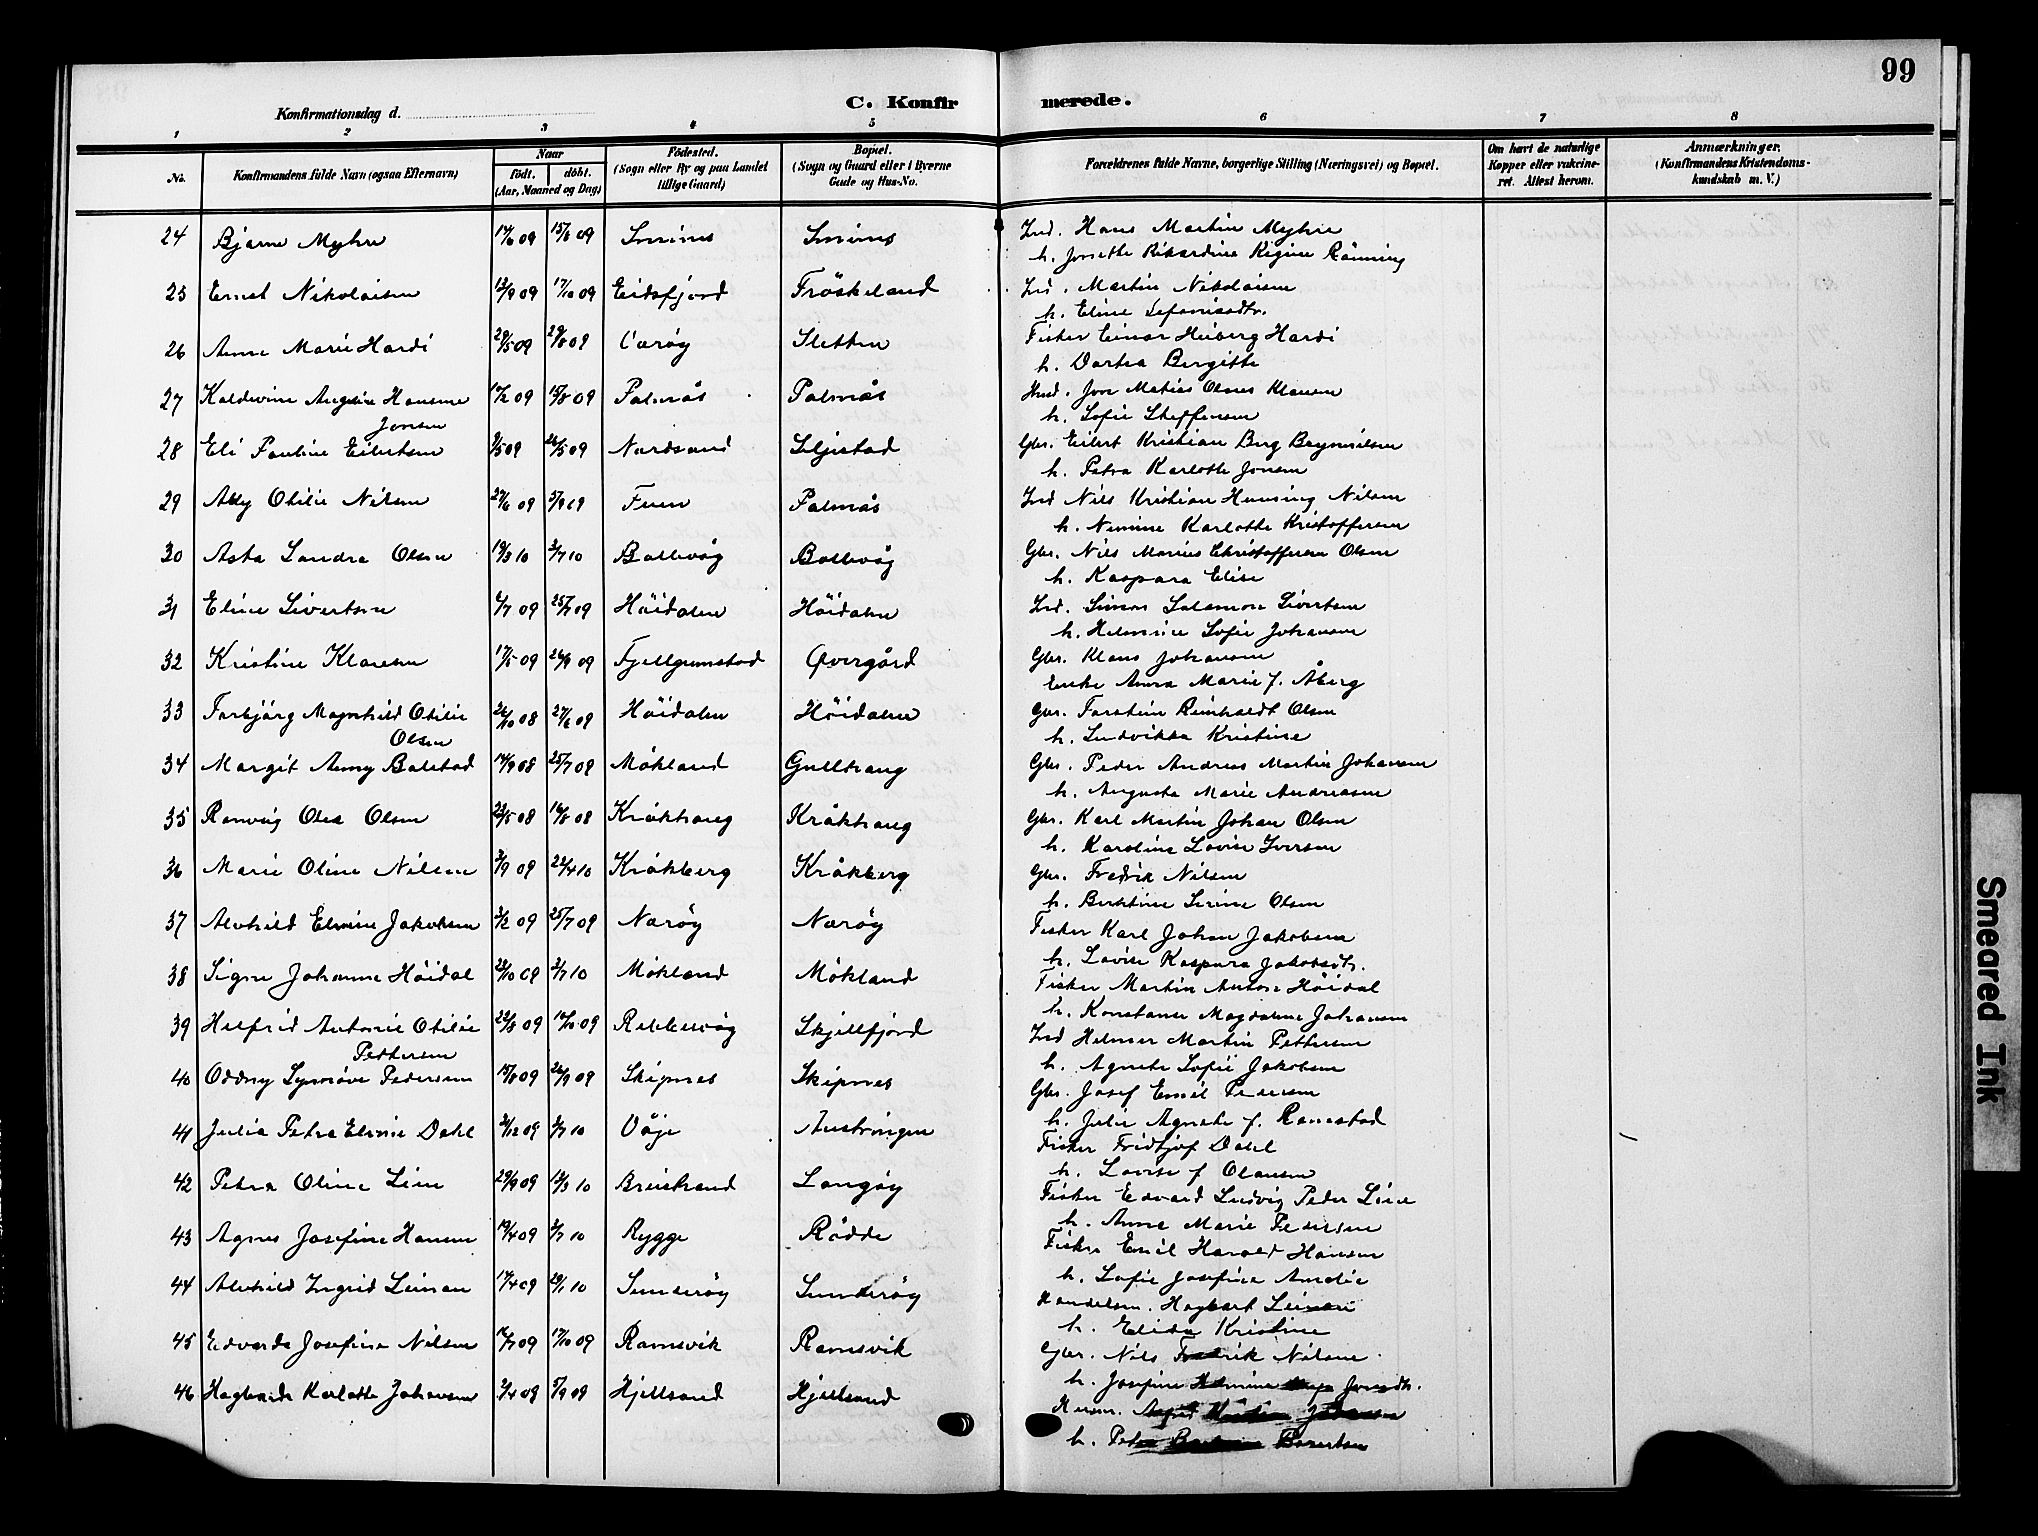 99
C. Konfirmerede.
Konfirmationsdag d.
1 2 3 4 5 6 7 8
No. Konfirmandens fulde Navn (ogsaa Efternavn) Naar født. døbt. (Aar, Maaned og Dag) Fødested. (Sogn eller By og paa Landet tillige Gaard) Bopæl. (Sogn og Gaard eller i Byerne Gade og Hus-No. Forældrenes fulde Navne, borgerlige Stilling (Næringsvei) og Bopæl. Om havt de naturlige Kopper eller vaccineret. Attest herom. Anmærkninger. (Konfirmandens Kristendomskundskab m. V.)
24 Bjarne Myhre 09 15/8 09 Smines Smines Ind. Hans Martin Myhre
h. Josette Rikardine Regine Rønning
25 Ernst Nikolaisen 12/9 09 17/10 09 Eidsfjord Fröskeland Ind. Martin Nikolaisen
h. Eline
26 Anna Marie Hardi 29/5 09 29/8 09 Sletten Fisker Einar Heiberg Hardi
h. Dortea Bergitte
27 Angelin Hansine 09 15/8 09 Palmås Palmås Jon Matias Olaus Klausen
Jonsen h. Sofie Steffensen
28 Eli Pauline Eilertsen 09 26/5 09 Nordsand Seljestad Gbr. Eilert Kristian Berg Brynnilsen
h. Petra Karlotte Jonsen
29 Otilie Nilsen 27/6 09 5/9 09 Palmås Ind Nils Kristian Henning Nilsen
h. Karlotte Kristoffersen
30 Asta Sandra Olsen 19/3 10 3/7 10 Ballevåg Ballevåg Gbr. Nils Marius Christoffersen Olsen
h. Kaspara Elise
31 Eline Sivertsen /7 09 25/7 09 Höidalen Höidalen Ind. Simon Salamon Sivertsen
h. Helmine Sofie Johansen
32 Kristine Klausen 17/5 09 26/9 09 Overgård Gbr. Klaus Johansen
Enke Anna Marie f. Åberg
33 Torbjörg Magnhild Otilie 26/10 08 27/6 09 Höidalen Höidalen Gbr. Torstein Reinholdt Olsen
Olsen h. Ludvikka Kristine
34 Margit Anny Balstad 14/9 08 25/7 09 Mökland Gullhaug Gbr. Peder Andreas Martin Johansen
h. Augusta Marie Andreasen
35 Ranveig Olea Olsen 23/5 08 16/8 08 Kråkhaug Kråkhaug Gbr. Karl Martin Johan Olsen
h. Karoline Lovise Iversen
36 Marie Oline Nilsen 3/9 09 24/4 10 Kråkberg Kråkberg Gbr. Fredrik Nilsen
h. Berntine Serine Olsen
37 Alvhild Elvine Jakobsen 3/2 09 25/7 09 Naröy Naröy Fisker Karl Johan Jakobsen
h. Lovise Kaspara Jakobsdtr.
38 Signe Johanne Höidal 22/10 09 3/7 10 Mökland Mökland Fisker Martin Anton Höidal
h. Konstanse Magdalene Johansen
39 Helfrid Antonie Otilie 22/8 09 09 Skjellfjord Ind Helmer Martin Pettersen
Pettersen h. Agnete Sofie Jakobsen
40 Oddny Synnöve Pedersen 15/8 09 26/9 09 Skipnes Skipnes Gbr. Josef Emil Pedersen
h. Julie Agnete f. Ramstad
41 Julia Petra Elvine Dahl 09 3/7 10 Våje Austvingen Fisker Fridtjof Dahl
h. Lovise f Olausen
42 Petra Oline Lien 29/9 09 13/3 10 Breistrand Langöy Fisker Edvard Ludvig Peder Lien
h. Anne Marie Pedersen
43 Agnes Josefine Hansen 19/4 09 3/7 10 Rygge Rödde Fisker Emil Harald Hansen
h. Sofie Josefine Amalie
44 Alvhild Ingrid Leinan 17/4 09 29/1 10 Sunderöy Sunderöy Handelsm. Hagbart Leinan
h. Elida Kristine
45 Edvarda Josefine Nilsen /7 09 17/10 09 Ramsvik Ramsvik Gbr. Nils Fredrik Nilsen
h. Josefine
46 Karlotte Johansen 3/4 09 5/9 09 Hjellsand Hjellsand
h.
Smeared Ink